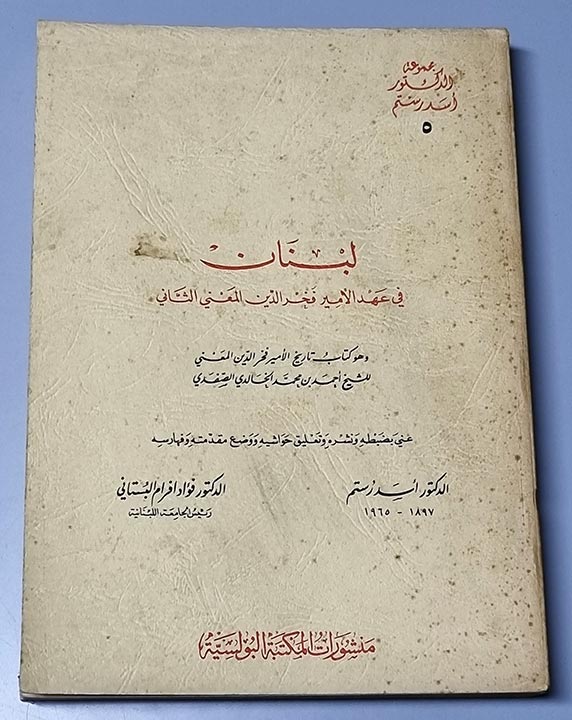 مجموعة
الدكتور
أسد رستم
٥
لبنان
في عهد الأمير فخر الدين المعني الثاني
وهو كتاب تاريخ الأمير فخر الدين المعني
للشيخ أحمد بن محمد الخالدي الصفدي
عني بضبطه ونشره وتعليق حواشيه ووضع مقدمته وفهارسه
الدكتور أسد رستم
١٨٩٧ - ١٩٦٥
الدكتور فؤاد افرام البستاني
رئيس الجامعة اللبنانية
منشورات المكتبة البولسية